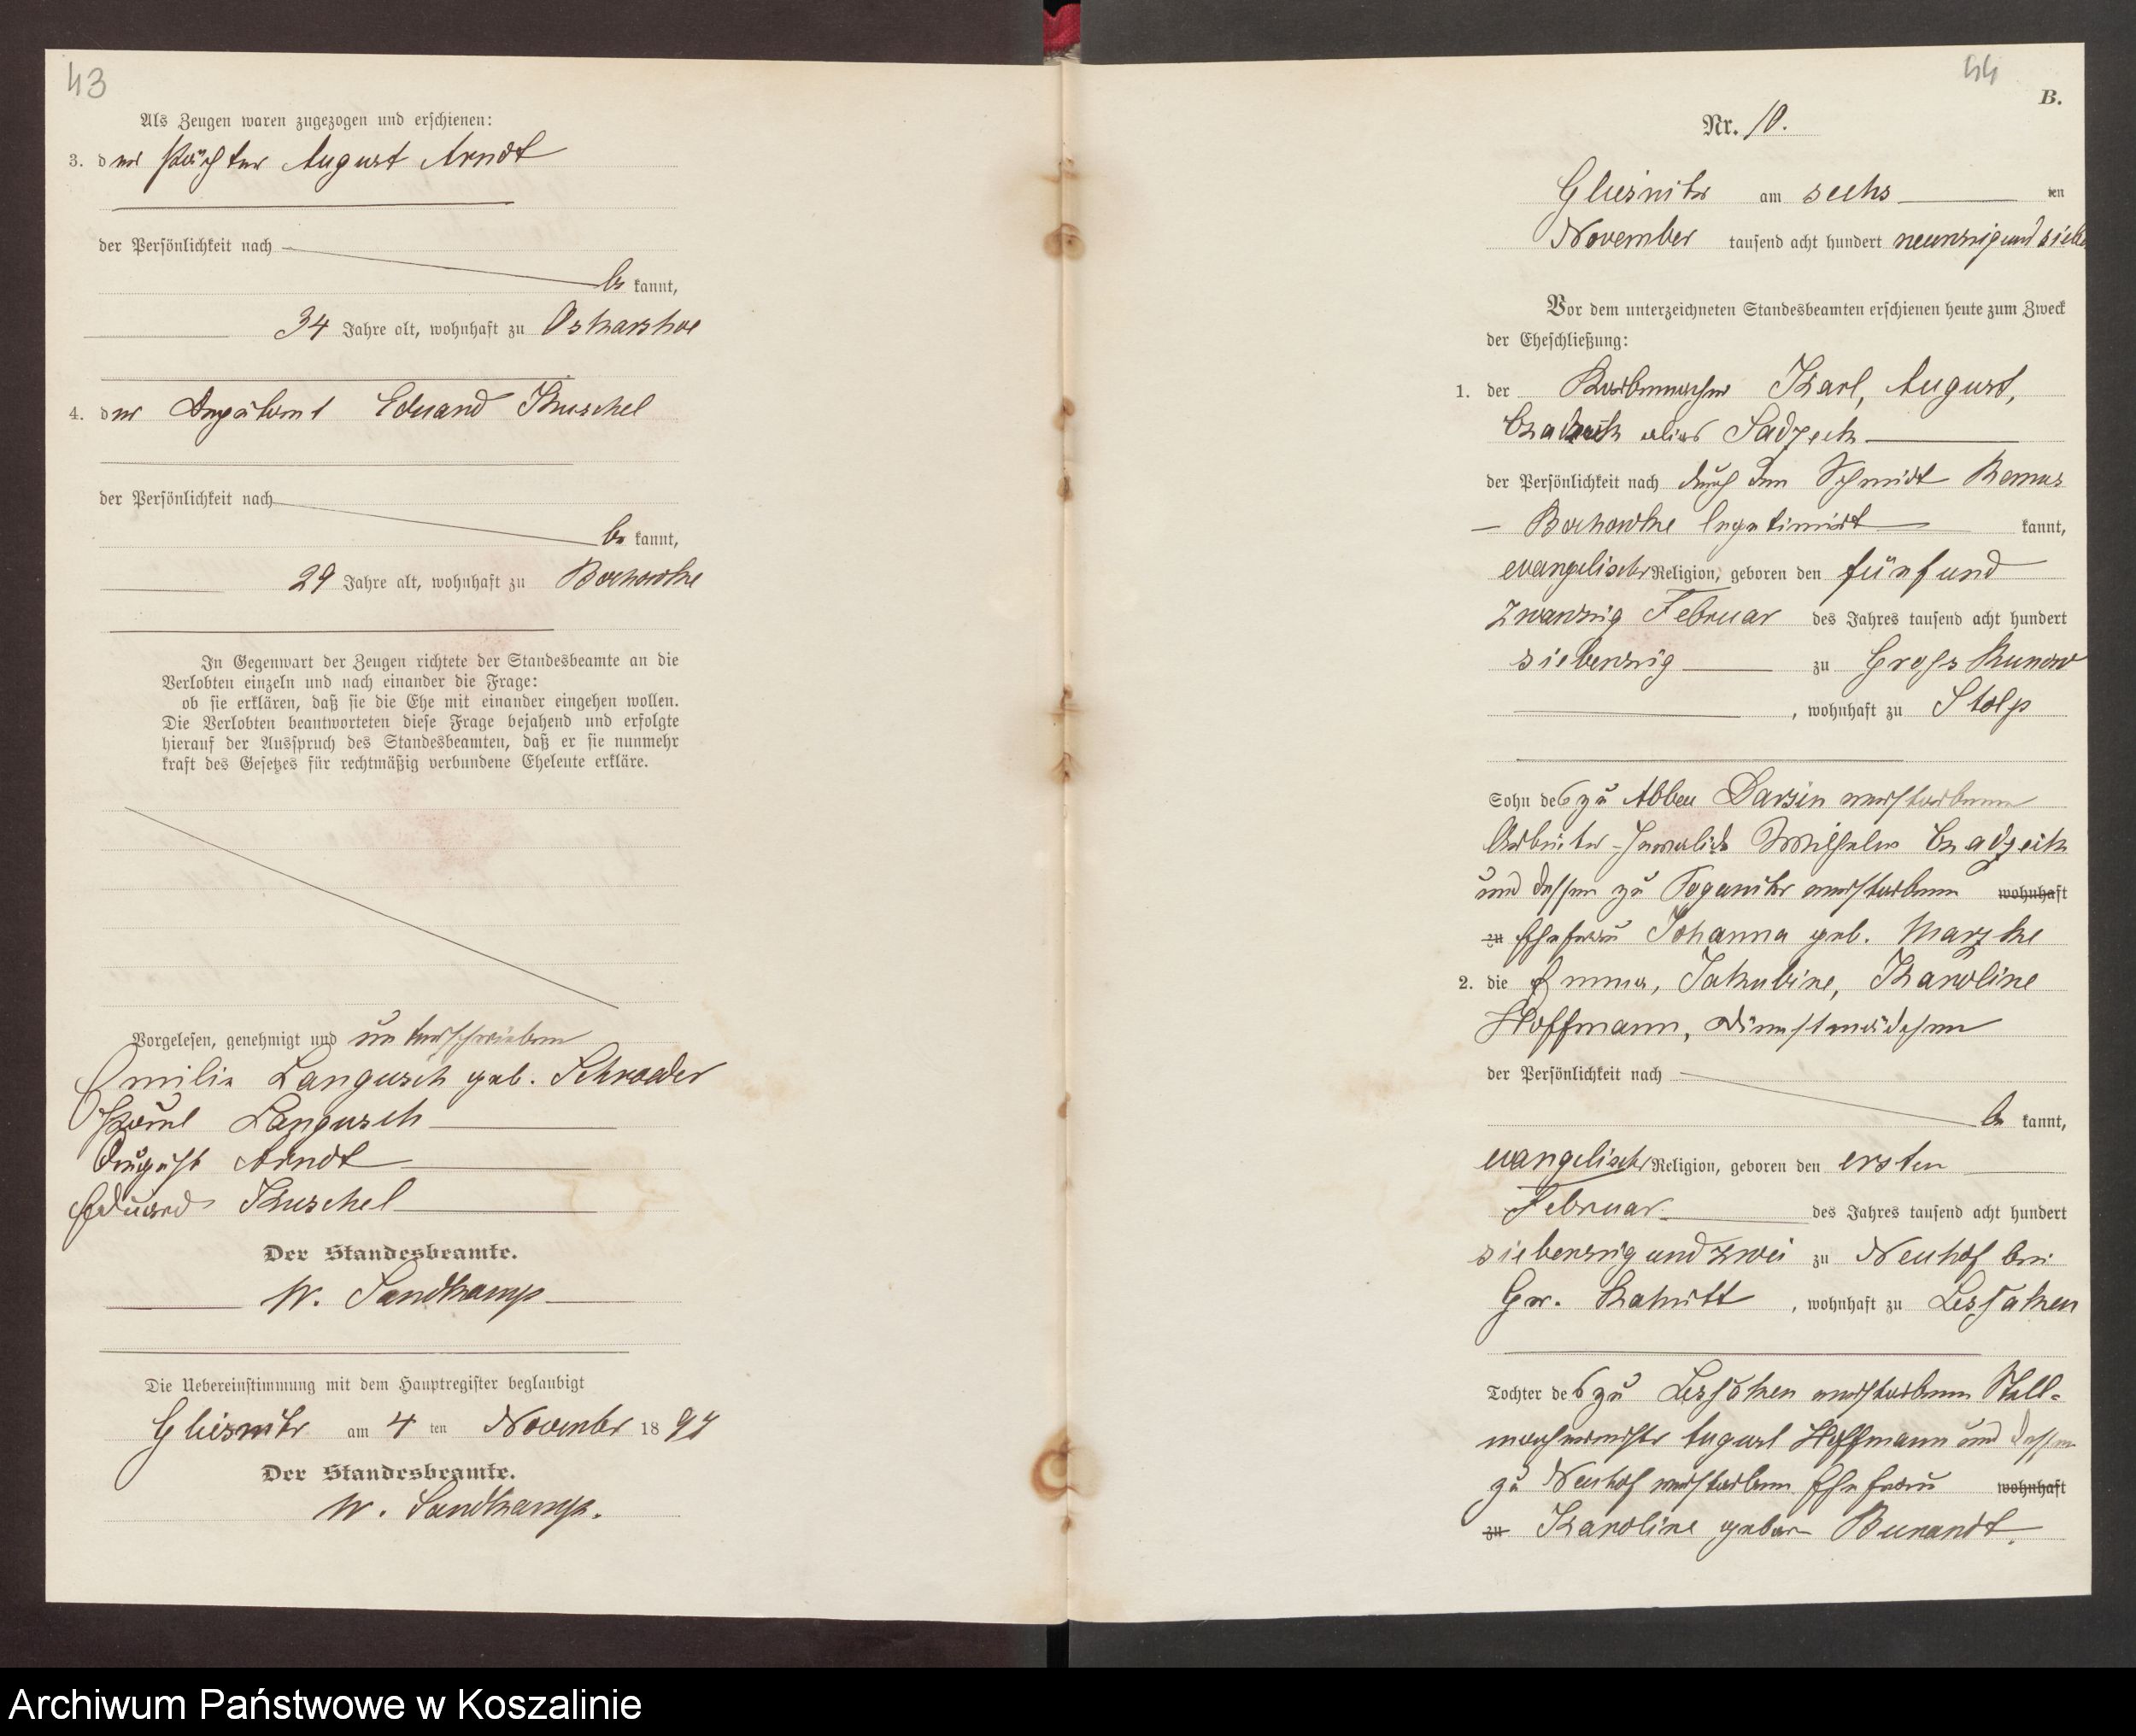 43
Als Zeugen waren zugezogen und erschienen:
3. der Pächter August Arndt
der Persönlichkeit nach
be kannt,
34 Jahre alt, wohnhaft zu Oskarshoe
4. der Deputant Eduard Kuschel
der Persönlichkeit nach
be kannt,
29 Jahre alt, wohnhaft zu Bochowke
In Gegenwart der Zeugen richtete der Standesbeamte an die
Verlobten einzeln und nach einander die Frage:
ob sie erklären, daß sie die Ehe mit einander eingehen wollen.
Die Verlobten beantworteten diese Frage bejahend und erfolgte
hierauf der Ausspruch des Standesbeamten, daß er sie nunmehr
kraft des Gesetzes für rechtmäßig verbundene Eheleute erkläre.
Vorgelesen, genehmigt und unterschrieben
Emilie Langusch geb. Schroeder
Langusch
August Arndt
Eduard Kuschel
Der Standesbeamte.
W. Sandkamp
Die Uebereinstimmung mit dem Hauptregister beglaubigt
Gliesnitz am 4 ten November 1897
Der Standesbeamte.
W. Sandkamp.
44
B.
Nr. 10.
Gliesnitz am sechs ten
November tausend acht hundert neunzig und sieben
Vor dem unterzeichneten Standesbeamten erschienen heute zum Zweck
der Eheschließung:
1. der Korbmacher Karl, August,
alias Sadzeck
der Persönlichkeit nach durch den Schmidt Ramus
Bochowke legetimirt kannt,
evangelischer Religion, geboren den fünf und
zwanzig Februar des Jahres tausend acht hundert
siebenzig zu Gross Runow
, wohnhaft zu Stolp
Sohn des zu Abbau Darsin verstorbenen
Arbeiter Wilhelm Czadzeik
und dessen zu Poganitz verstorbenen wohnhaft
zu Ehefrau Johanna geb. Marzke
2. die Emma, Jakubine, Karoline
Hoffmann, Dienstmädchen
der Persönlichkeit nach
be kannt,
evangelischer Religion, geboren den ersten
Februar des Jahres tausend acht hundert
siebenzig und zwei zu Neuhof bei
Gr. Rakitt , wohnhaft zu Lessaken
Tochter des zu Lessaken verstorbenen Stell-
machermeister August Hoffmann und dessen
zu Neuhof verstorbenen Ehefrau wohnhaft
zu Karoline gebor Bunandt.
Archiwum Państwowe w Koszalinie